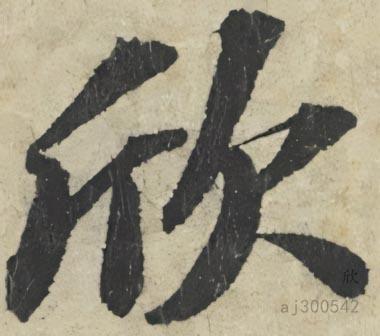 欣
欣
aj300542